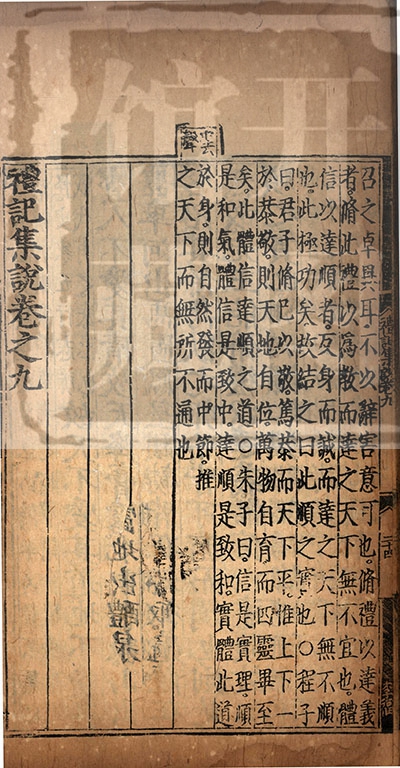 召之卓異耳不以辭害意可也脩禮以達義
者脩此禮以爲教而達之天下無不宜也體
信以達順者反身而誠而達之天下無不順
也此極功矣故結之曰此順之實也○程子
曰君子脩己以敬篤恭而天下平惟上下一
於恭敬則天地自位萬物自育而四靈畢至
矣此體信達順之道○朱子曰信是實理順
是和氣體信是致中達順是致和實體此道
於身則自然發而中節推
之天下而無所不通也
禮記集說卷之九